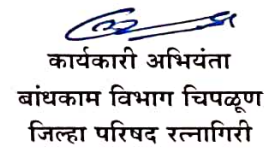 कार्यकारी अभियंता
बांधकाम विभाग चिपळूण
जिल्हा परिषद रत्नागिरी